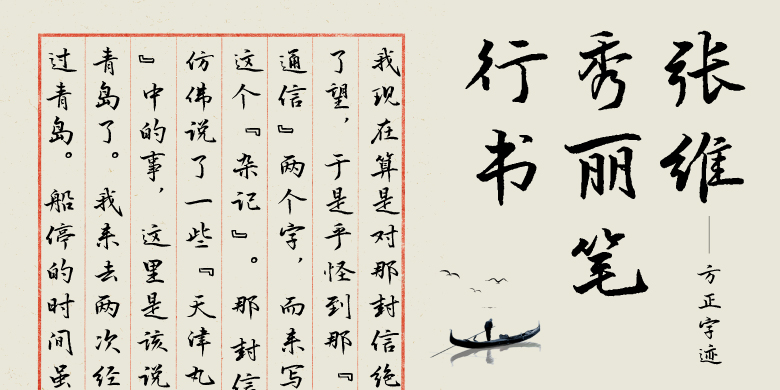 张维
方正字迹
秀丽笔
行书
我现在算是对那封信绝
了望，于是乎怪到那『
通信』两个字，而来写
这个『杂记』。那封信
仿佛说了一些『天津丸
』中的事，这里是该说
青岛了。我来去两次经
过青岛。船停的时间虽